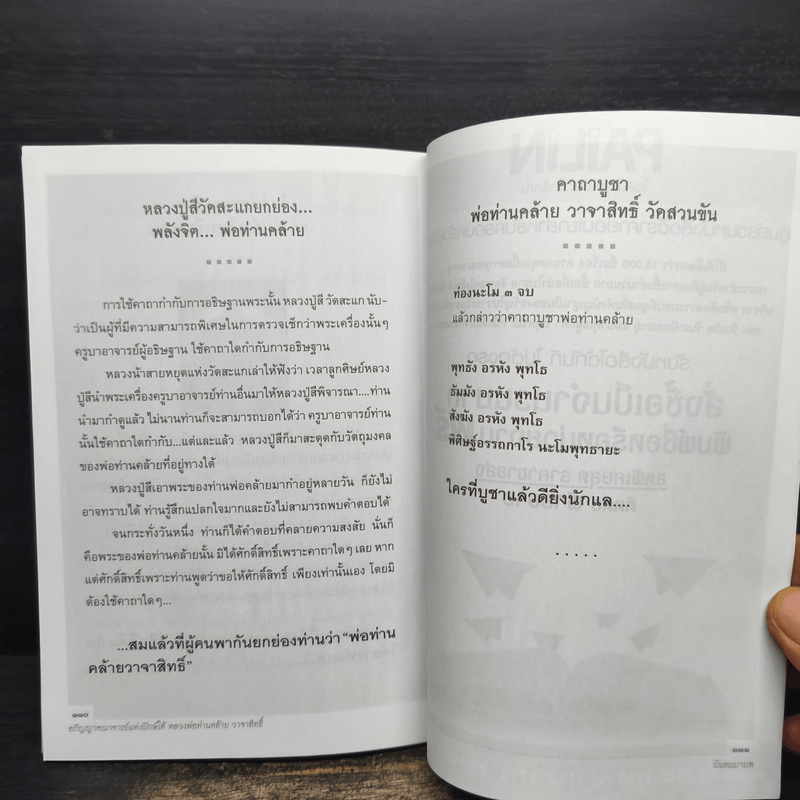 หลวงปู่สีวัดสะแกยกย่อง...
พลังจิต... พ่อท่านคล้าย
การใช้คาถากำกับการอธิษฐานพระนั้น หลวงปู่สี วัดสะแก นับ-
ว่าเป็นผู้ที่มีความสามารถพิเศษในการตรวจเช็กว่าพระเครื่องนั้นๆ
ครูบาอาจารย์ผู้อธิษฐาน ใช้คาถาใดกำกับการอธิษฐาน
หลวงน้าสายหยุดแห่งวัดสะแกเล่าให้ฟังว่า เวลาลูกศิษย์หลวง
ปู่สีนำพระเครื่องครูบาอาจารย์ท่านอื่นมาให้หลวงปู่สีพิจารณา....ท่าน
นำมากำดูแล้ว ไม่นานท่านก็จะสามารถบอกได้ว่า ครูบาอาจารย์ท่าน
นั้นใช้คาถาใดกำกับ...แต่และแล้ว หลวงปู่สีก็มาสะดุดกับวัตถุมงคล
ของพ่อท่านคล้ายที่อยู่ทางใต้
หลวงปู่สีเอาพระของท่านพ่อคล้ายมากำอยู่หลายวัน ก็ยังไม่
อาจทราบได้ ท่านรู้สึกแปลกใจมากและยังไม่สามารถพบคำตอบได้
จนกระทั่งวันหนึ่ง ท่านก็ได้คำตอบที่คลายความสงสัย นั่นก็
คือพระของพ่อท่านคล้ายนั้น มิได้ศักดิ์สิทธิ์เพราะคาถาใดๆ เลย หาก
แต่ศักดิ์สิทธิ์เพราะท่านพูดว่าขอให้ศักดิ์สิทธิ์ เพียงเท่านั้นเอง โดยมิ
ต้องใช้คาถาใดๆ...
...สมแล้วที่ผู้คนพากันยกย่องท่านว่า “พ่อท่าน
คล้ายวาจาสิทธิ์”
๑๑๐
อภิญญาคณาจารย์แห่งปักษ์ใต้ หลวงพ่อท่านคล้าย วาจาสิทธิ์
คาถาบูชา
พ่อท่านคล้าย วาจาสิทธิ์ วัดสวนขัน
ท่องนะโม ๓ จบ
แล้วกล่าวว่าคาถาบูชาพ่อท่านคล้าย
พุทธัง อรหัง พุทโธ
ธัมมัง อรหัง พุทโธ
สังฆัง อรหัง พุทโธ
พิศิษฐ์อรรถกาโร นะโมพุทธายะ
ใครที่บูชาแล้วดียิ่งนักแล....
.....
๑๑๑